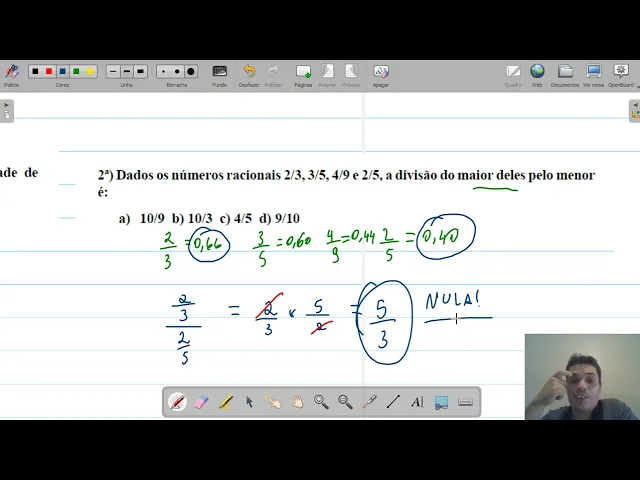 Paleta Cores Linha Borracha Fundo Desfazer Refazer Páginas Anterior Próximo Apagar Quadro Web Documentos Ver mesa OpenBoard
ade de
2ª) Dados os números racionais 2/3, 3/5, 4/9 e 2/5, a divisão do maior deles pelo menor
é:
a) 10/9 b) 10/3 c) 4/5 d) 9/10
2/3 = 0,66 3/5 = 0,60 4/9 = 0,44 2/5 = 0,40
2/3 / 2/5 = 2/3 × 5/2 = 5/3 NULA!
A